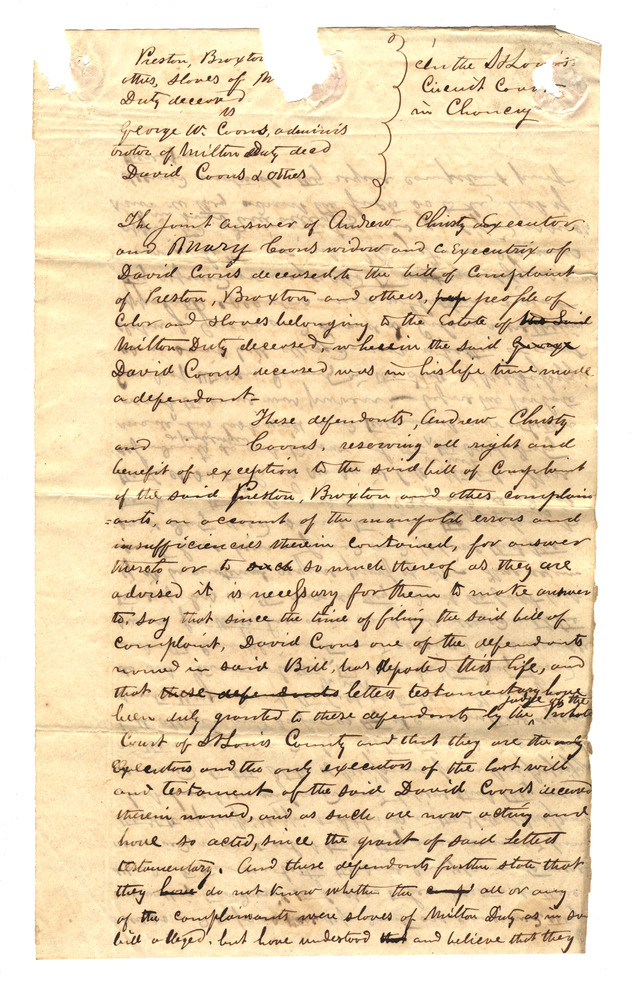 Preston, Broxton
others, slaves of M
Duty deceased
vs
George W. Coons, adminis
trator of Milton Duty decd
David Coons & others
In the St Louis
Circuit Court
in Chancery
The joint answer of Andrew Christy Executor
and Mary Coons widow and coExecutrix of
David Coons deceased to the bill of Complaint
of Preston, Broxton and others, people of
Color and slaves belonging to the Estate of the said
Milton Duty deceased, wherein the said George
David Coons deceased was in his life time made
a dependant –
These defendants, Andrew Christy
and Coons, reserving all right and
benefit of exception to the said bill of Complaint
of the said Preston, Broxton and others complain
=ants, on account of the manifold errors and
insufficiencies therein contained, for answer
thereto or to such so much thereof as they are
advised it is necessary for them to make answer
to, say that since the time of filing the said bill of
complaint, David Coons one of the defendants
named in said Bill, has departed this life, and
that these defendants letters testamentary have
been duly granted to these defendants by the judge of the Probate
Court of St Louis County and that they are the only
Executors and the only executors of the last will
and testament of the said David Coons deceased
therein named, and as such are now acting and
have so acted, since the grant of said letters
testamentary. And these defendants further state that
they have do not know whether the comp all or any
of the complainants were slaves of Milton Duty as in sa
bill alleged, but have understood that and believe that they